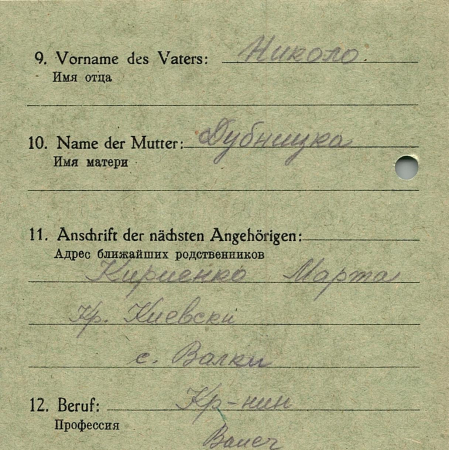 9. Vorname des Vaters: Николо.
Имя отца
10. Name der Mutter: Дубницка
Имя матери
11. Anschrift der nächsten Angehörigen:
Адрес ближайших родственников
Кириенко Марта
Кр. Киевски
с. Валки
12. Beruf: Кр-нин
Профессия